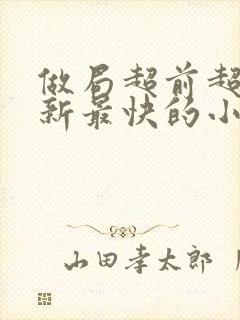 做局超前超
新最快的小
山田孝太郎